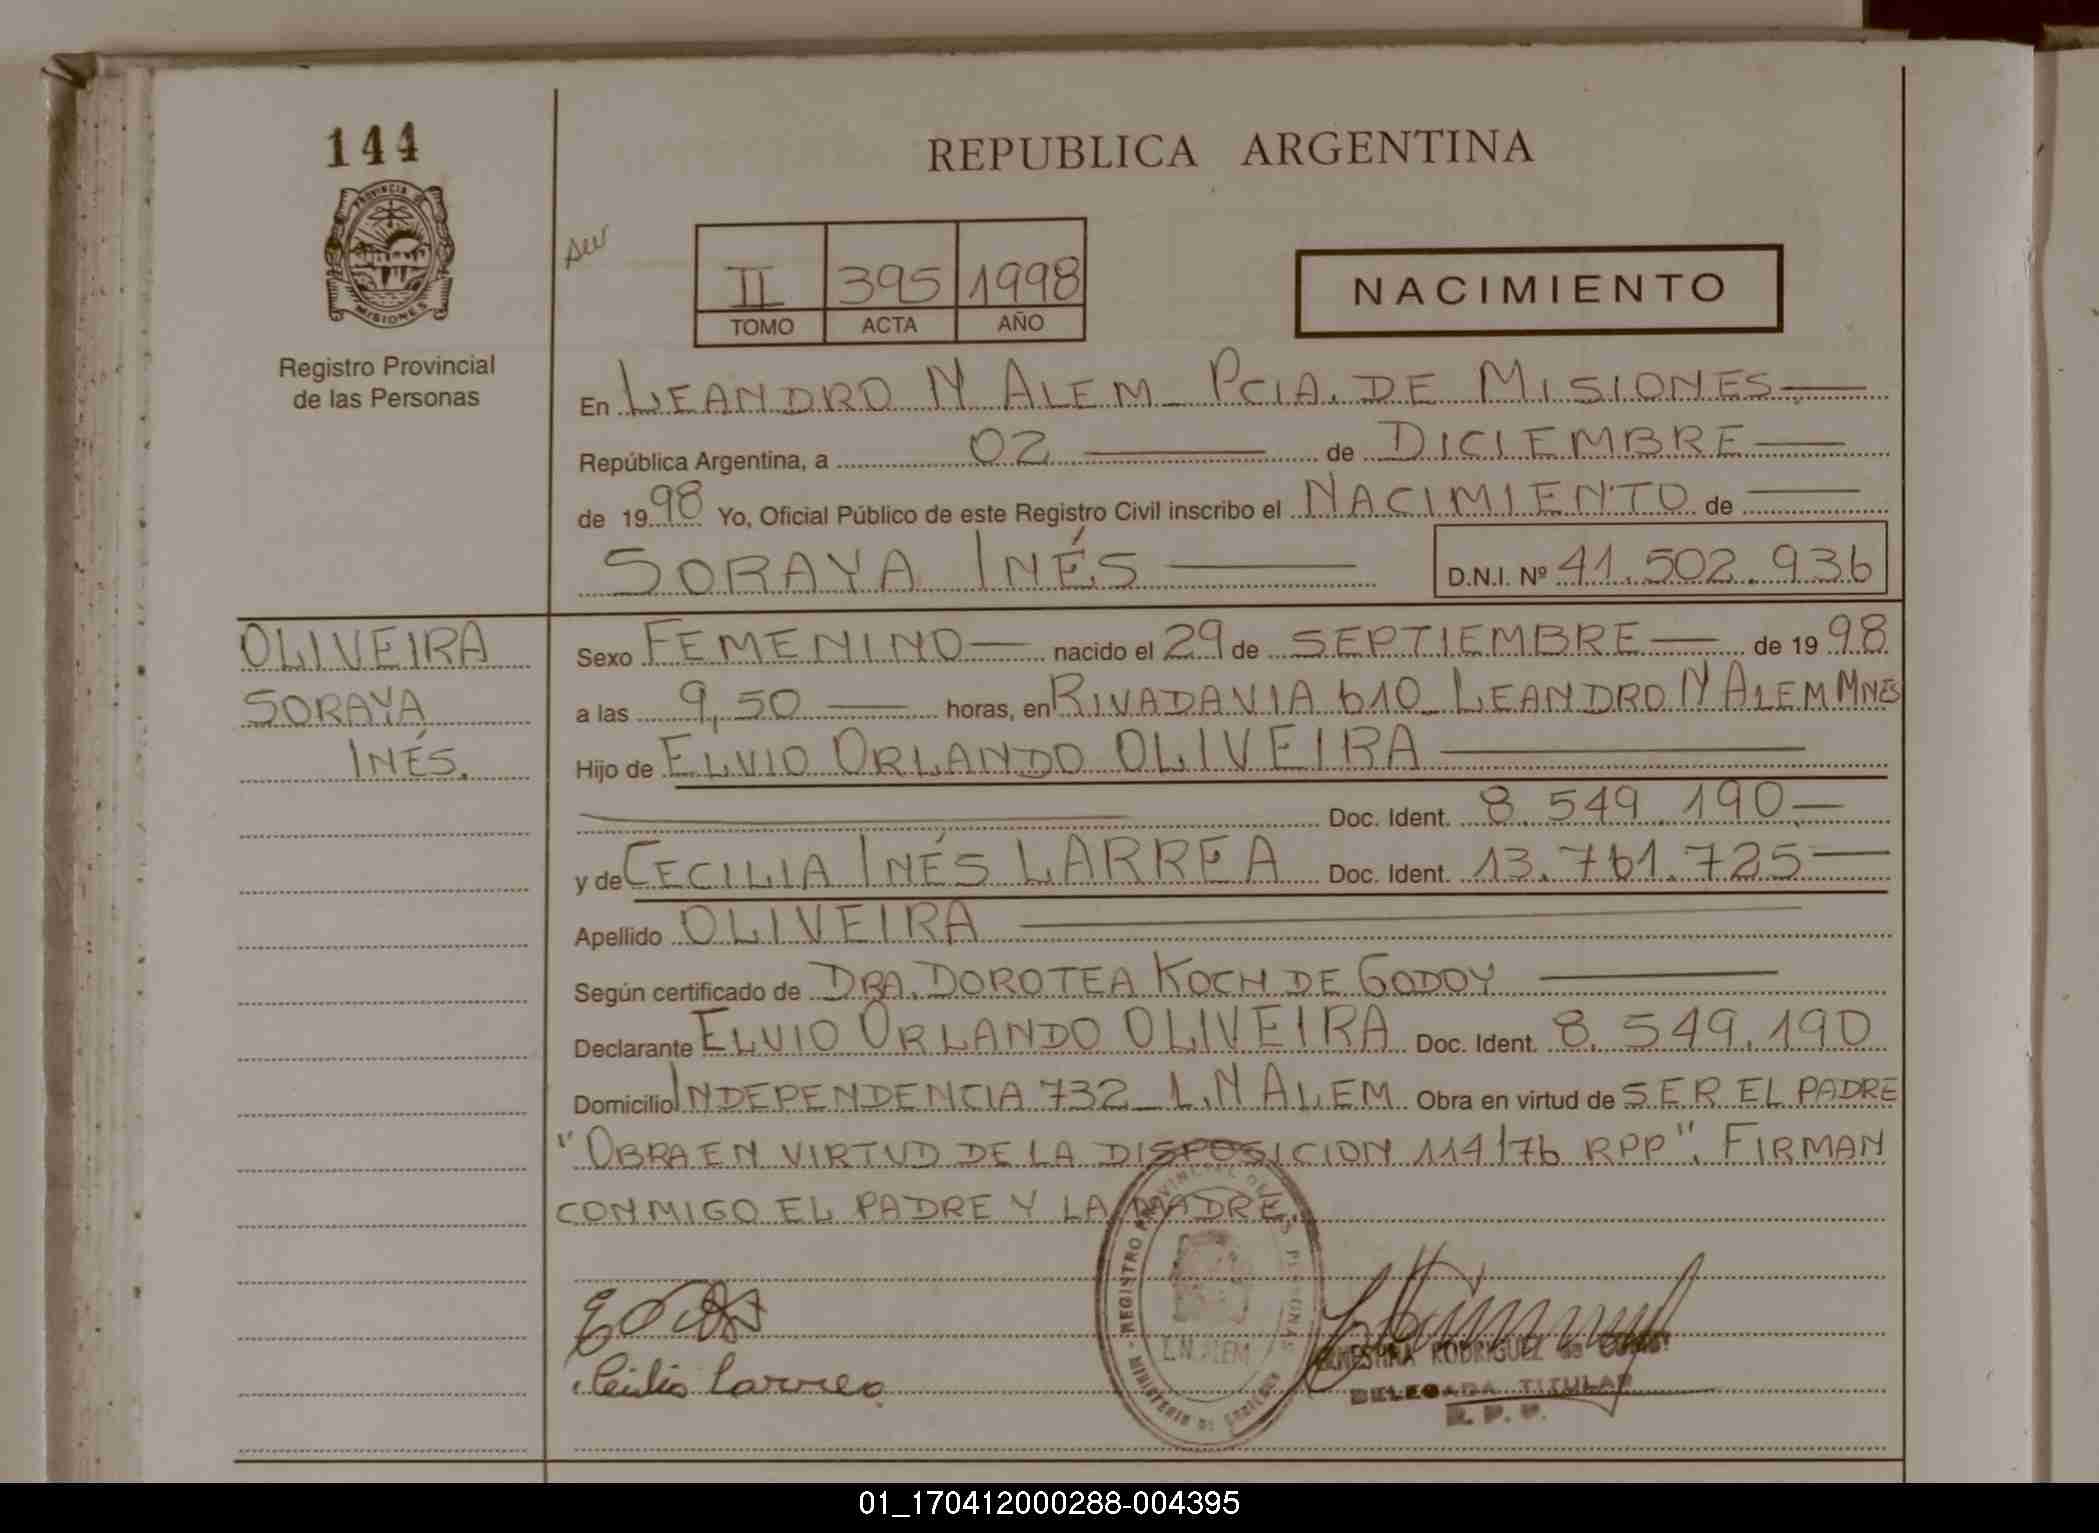 144
REPUBLICA ARGENTINA
PROVINCIA DE
MISIONES
II 395 1998
TOMO ACTA AÑO
NACIMIENTO
Registro Provincial
de las Personas
En LEANDRO N ALEM - PCIA. DE MISIONES
República Argentina, a 02 de DICIEMBRE
de 1998 Yo, Oficial Público de este Registro Civil inscribo el NACIMIENTO de
SORAYA INÉS D.N.I. Nº 41.502.936
OLIVEIRA
SORAYA
INÉS.
Sexo FEMENINO nacido el 29 de SEPTIEMBRE de 1998
a las 9,50 horas, en RIVADAVIA 610 - LEANDRO N ALEM MNES
Hijo de ELVIO ORLANDO OLIVEIRA
Doc. Ident. 8.549.190
y de CECILIA INÉS LARREA Doc. Ident. 13.761.725
Apellido OLIVEIRA
Según certificado de DRA. DOROTEA KOCH DE GODOY
Declarante ELVIO ORLANDO OLIVEIRA Doc. Ident. 8.549.190
Domicilio INDEPENDENCIA 732 - L.N ALEM Obra en virtud de SER EL PADRE
"OBRA EN VIRTUD DE LA DISPOSICION 114/76 RPP". FIRMAN
CONMIGO EL PADRE Y LA MADRE.
REGISTRO PROVINCIAL DE LAS PERSONAS
MINISTERIO DE GOBIERNO
L.N. ALEM
Cecilia Larrea
RODRIGUEZ de
DELEGADA TITULAR
R. P. P.
01_170412000288-004395